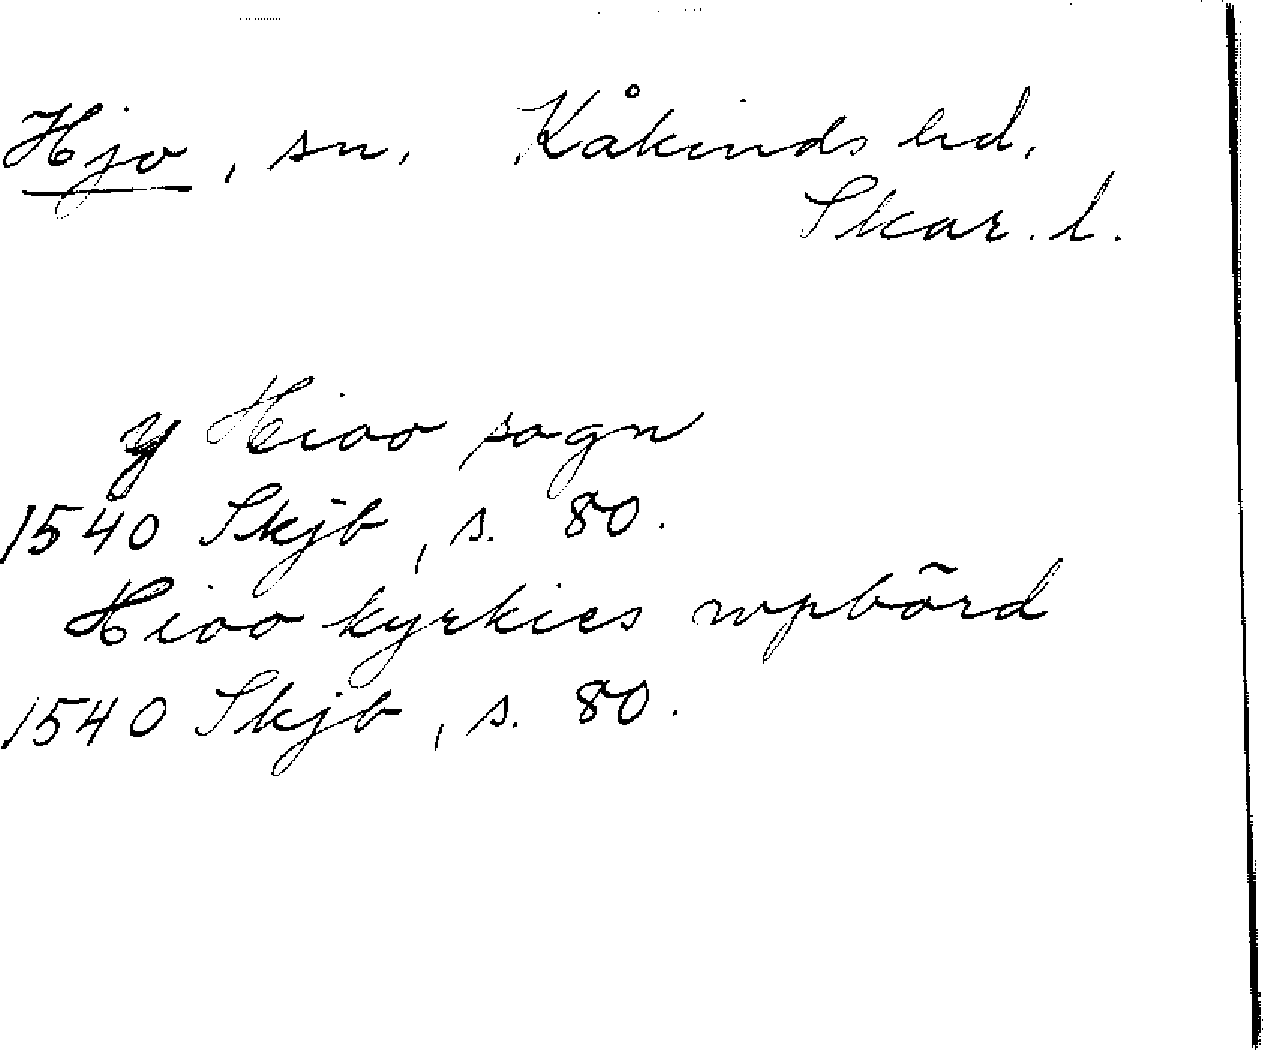 Hjo, sn. Kåkinds hd.
Skar. l.
y Hioo sogn
1540 Skjb, s. 80.
Hioo kyrkies wpbörd
1540 Skjb, s. 80.